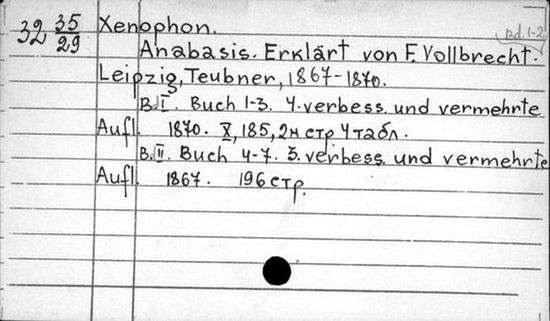 32 35/29 Xenophon. Bd. 1-2
Anabasis. Erklärt von F. Vollbrecht.
Leipzig, Teubner, 1867-1870.
B. I. Buch 1-3. 4. verbess. und vermehrte
Aufl. 1870. X, 185, 2н стр 4 табл.
B. II. Buch 4-7. 3. verbess. und vermehrte
Aufl. 1867. 196 стр.